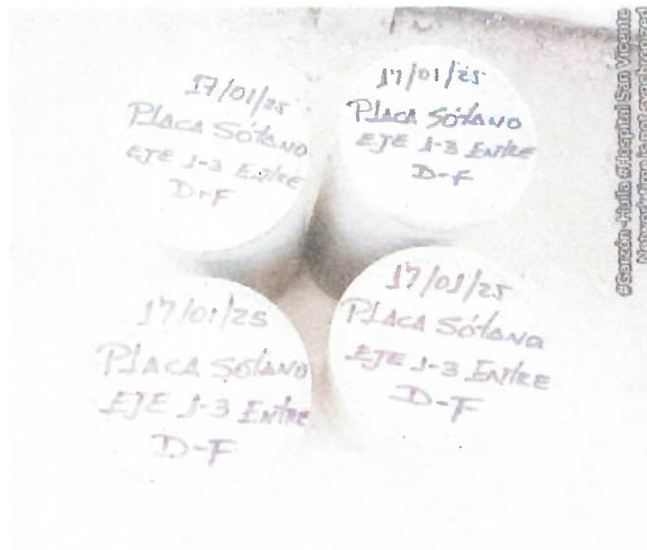 17/01/25
PLACA SÓTANO
EJE 1-3 ENTRE
D-F
17/01/25
PLACA SÓTANO
EJE 1-3 ENTRE
D-F
17/01/25
PLACA SÓTANO
EJE 1-3 ENTRE
D-F
17/01/25
PLACA SÓTANO
EJE 1-3 ENTRE
D-F
#Garzón-Huila #Hospital San Vicente
Network time is not synchronized